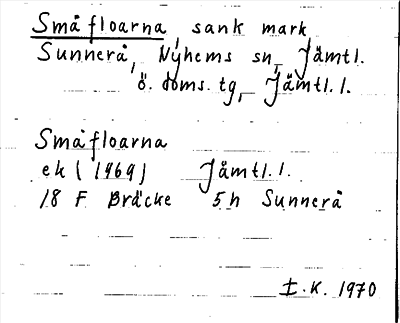 Småfloarna, sank mark
Sunnerå, Nyhems sn, Jämtl.
ö. doms. tg, Jämtl. l.
Småfloarna
ek (1969) Jämtl. l.
18 F Bräcke 5h Sunnerå
I.K. 1970